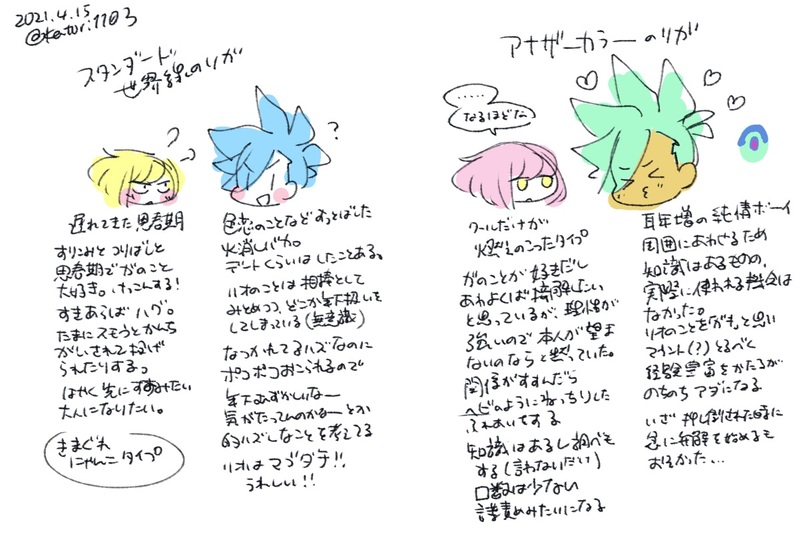 2021.4.15
@katori1103
スタンダード
世界線のリガ
遅れてきた思春期
すりこみとつりばしと
思春期でガのこと
大好き。けっこんする!
すきあらばハグ。
たまにスモウとかんち
がいされて投げ
られたりする。
はやく先にすすみたい
大人になりたい。
きまぐれ
にゃんこタイプ
?
色恋のことなどすっとばした
火消しバカ。
デートくらいはしたことある。
リオのことは相棒として
みとめつつ、どこか年下扱いを
してしまっている(無意識)
なつかれてるハズなのに
ポコポコおこられるので
年下むずかしいなー
気がたってんのかなーとか
的ハズしなことを考えてる
リオはマブダチ!!
うれしい!!
アナザーカラーのリガ
……
なるほどな
クールだけが
燃えのこったタイプ
ガのことが好きだし
あわよくば接触したい
と思っているが、理性が
強いので本人が望ま
ないのならと黙っていた。
関係がすすんだら
ヘビのようにねっちりした
ふれあいをする
知識はあるし調べも
する(言わないだけ)
口数は少ない
言葉責めみたいになる
耳年増の純情ボーイ
周囲にあわせるため
知識はあるものの、
実際に使われる機会は
なかった。
リオのことをガもと思い
マウント(?)とるべく
経験豊富をかたるが
のちのちアダになる
いざ押し倒された時に
急に弁解を始めるも
おそかった…